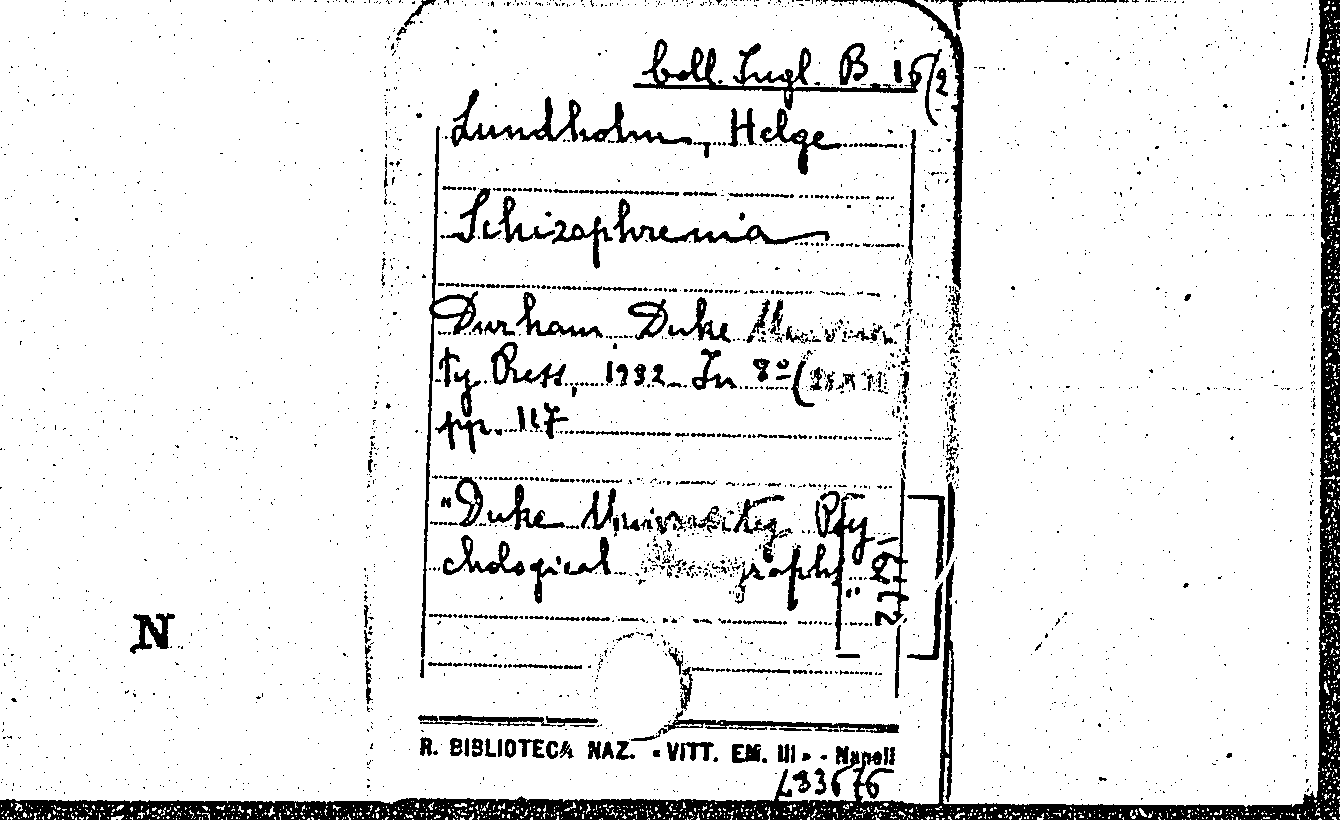 Coll. Ingl. B. 15/2
Lundholm, Helge
Schizophrenia
Durham Duke Universi
ty Press, 1932 In 8º (
pp. 117
"Duke University Psy
chological graphs"
N
R. BIBLIOTECA NAZ. «VITT. EM. III» - Napoli